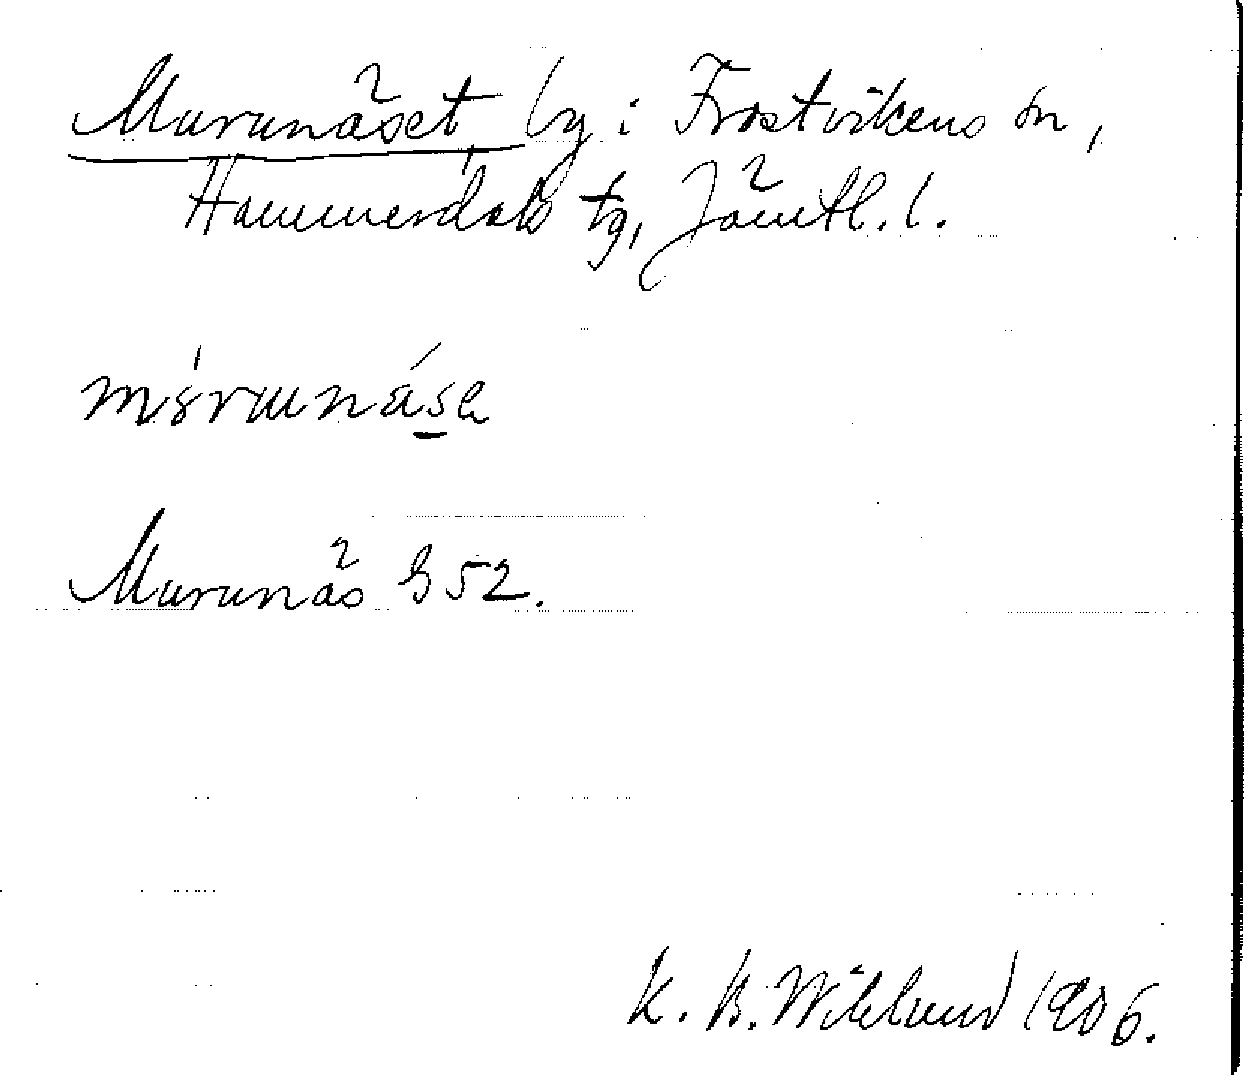 Murunäset by i Frostvikens sn,
Hammerdals tg, Jämtl. l.
Murunäs G 52.
K. B. Wiklund 1906.